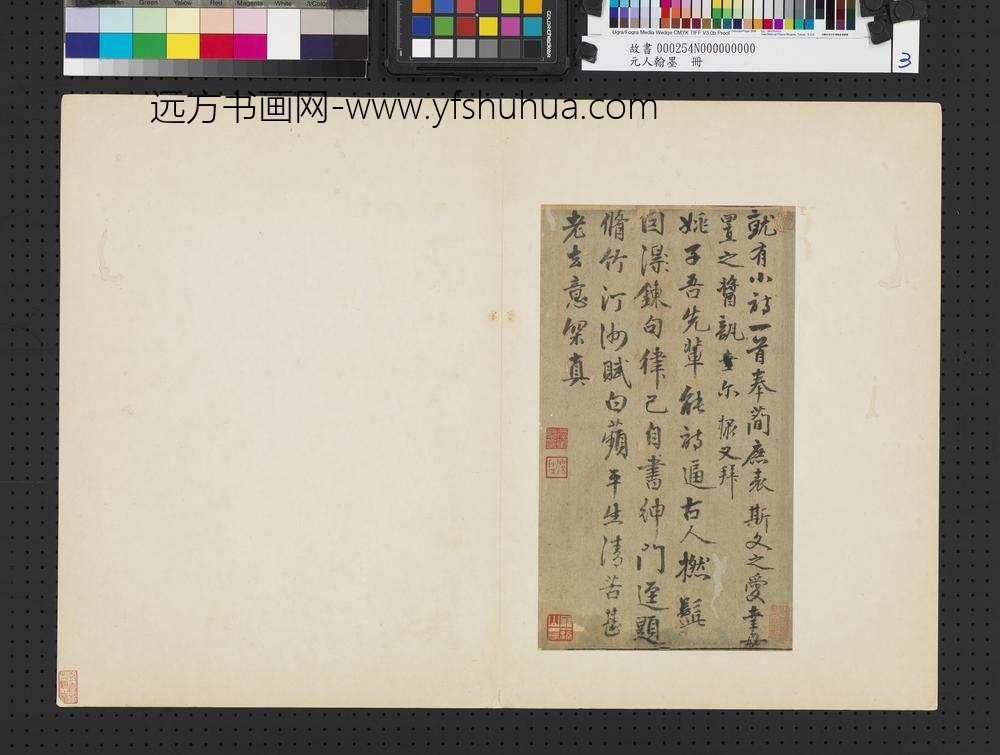 Green
Red
Magenta
White
3/Color
colorchecker
Ugra/Fogra Media Wedge CMYK TIFF V3.0b Proof
故書 000254N000000000
元人翰墨 冊
3
远方书画网-www.yfshuhua.com
就有小詩一首奉蕳庶表斯文之愛幸毋
置之醬瓿 尔 振又拜
姚子吾先輩能詩逼古人撚髭
因得鍊句律己自書紳門逕題
脩竹汀洲賦白蘋平生清苦甚
老去意深真